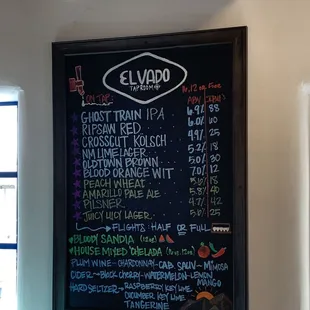 EL VADO
TAPROOM
Pr. 12 oz. Pour
ON TAP ABV IBU'S
GHOST TRAIN IPA 6.9% 88
RIPSAW RED 6.0% 60
CROSSCUT KÖLSCH 4.9% 25
NM LIME LAGER 5.2% 18
OLDTOWN BROWN 5.0% 30
BLOOD ORANGE WIT 7.0% 12
PEACH WHEAT 18
AMARILLO PALE ALE 40
PILSNER 4.7% 42
JUICY LUCY LAGER 5.0% 25
FLIGHTS: HALF OR FULL
BLOODY SANDIA
HOUSE MIXED 'CHELADA
PLUM WINE - CHARDONNAY - CAB. SAUV - MIMOSA
CIDER - BLACK CHERRY - WATERMELON - LEMON
HARD SELTZER - RASPBERRY KEY LIME MANGO
CUCUMBER KEY LIME
TANGERINE